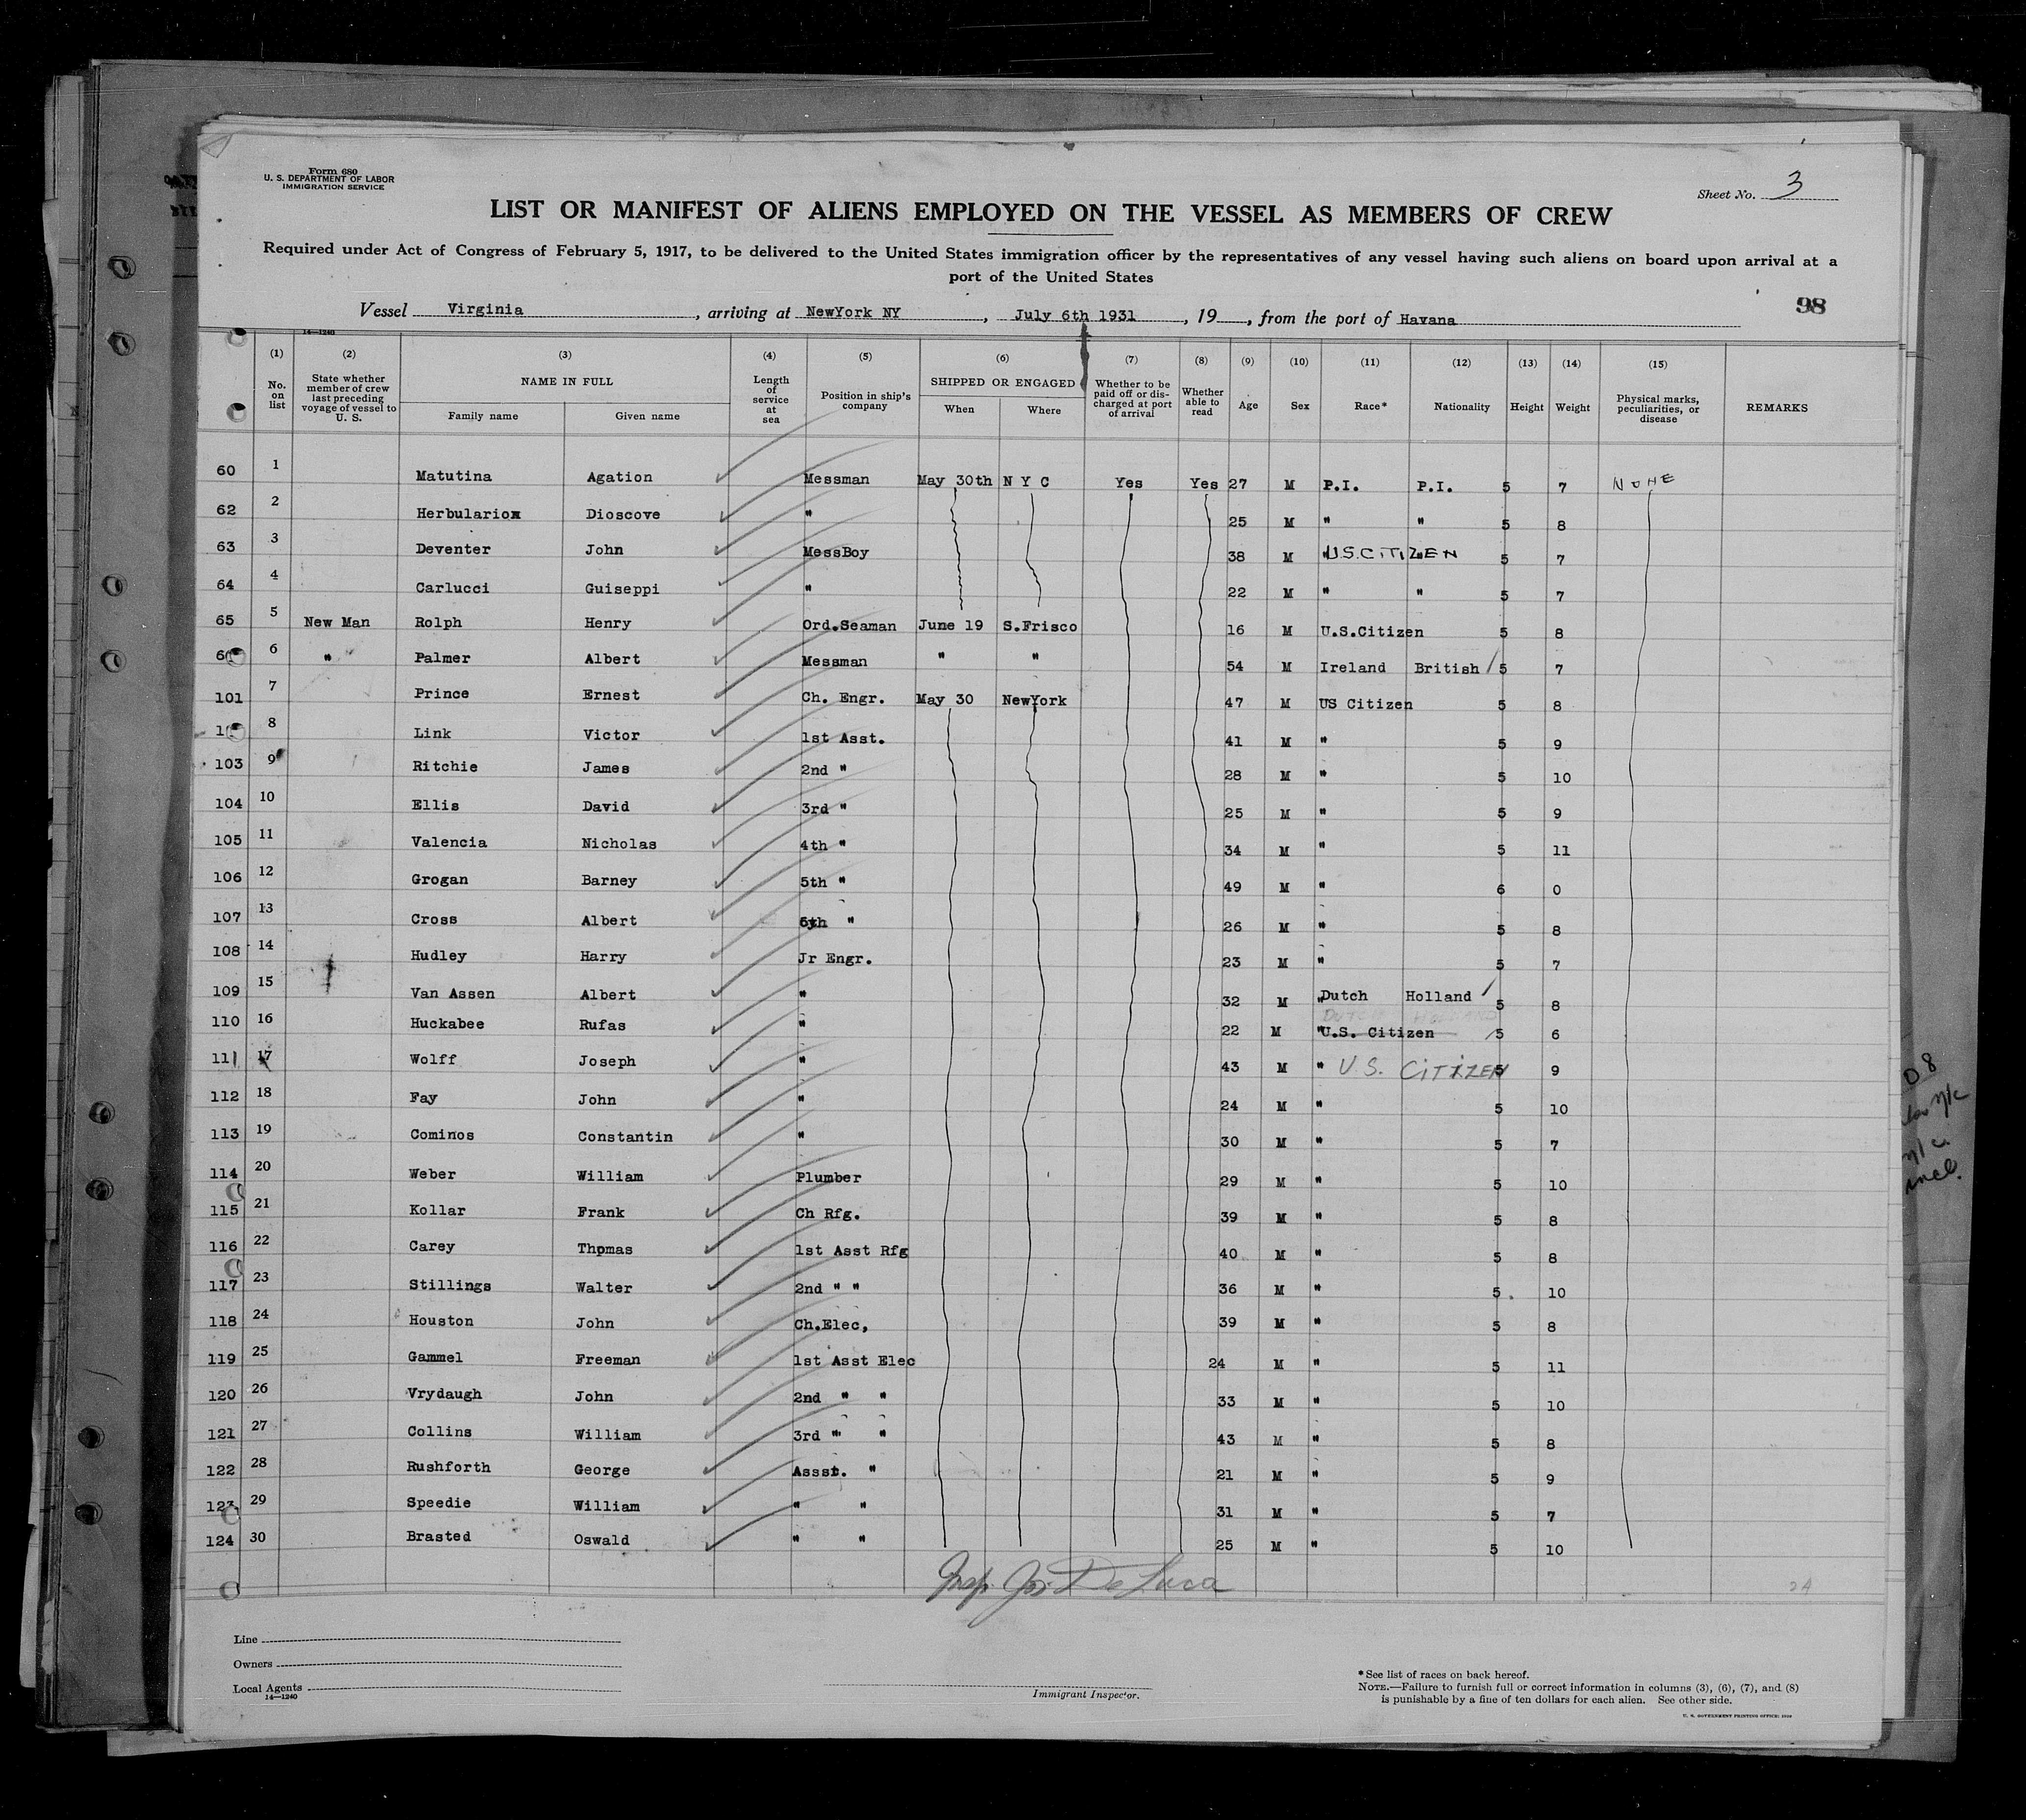 Form 680
U. S. DEPARTMENT OF LABOR
IMMIGRATION SERVICE
Sheet No. 3
LIST OR MANIFEST OF ALIENS EMPLOYED ON THE VESSEL AS MEMBERS OF CREW
Required under Act of Congress of February 5, 1917, to be delivered to the United States immigration officer by the representatives of any vessel having such aliens on board upon arrival at a
port of the United States
98
Vessel Virginia, arriving at NewYork NY, July 6th 1931, 19, from the port of Havana
14—1240
(1) (2) (3) (4) (5) (6) (7) (8) (9) (10) (11) (12) (13) (14) (15)
No. on list State whether member of crew last preceding voyage of vessel to U. S. NAME IN FULL Family name Given name Length of service at sea Position in ship's company SHIPPED OR ENGAGED When Where Whether to be paid off or discharged at port of arrival Whether able to read Age Sex Race* Nationality Height Weight Physical marks, peculiarities, or disease REMARKS
60 1 Matutina Agation Messman May 30th N Y C Yes Yes 27 M P.I. P.I. 5 7 NONE
62 2 Herbulariox Dioscove " 25 M " " 5 8
63 3 Deventer John MessBoy 38 M " U.S. CITIZEN 5 7
64 4 Carlucci Guiseppi " 22 M " " 5 7
65 5 New Man Rolph Henry Ord.Seaman June 19 S.Frisco 16 M U.S.Citizen 5 8
6 6 " Palmer Albert Messman " " 54 M Ireland British 5 7
101 7 Prince Ernest Ch. Engr. May 30 NewYork 47 M US Citizen 5 8
8 Link Victor 1st Asst. 41 M " 5 9
103 9 Ritchie James 2nd " 28 M " 5 10
104 10 Ellis David 3rd " 25 M " 5 9
105 11 Valencia Nicholas 4th " 34 M " 5 11
106 12 Grogan Barney 5th " 49 M " 6 0
107 13 Cross Albert 6th " 26 M " 5 8
108 14 Hudley Harry Jr Engr. 23 M " 5 7
109 15 Van Assen Albert " 32 M " Dutch Holland 5 8
110 16 Huckabee Rufas " 22 M " U.S. Citizen 5 6
111 17 Wolff Joseph " 43 M " U.S. CITIZEN 5 9
112 18 Fay John " 24 M " 5 10
113 19 Cominos Constantin " 30 M " 5 7
114 20 Weber William Plumber 29 M " 5 10
115 21 Kollar Frank Ch Rfg. 39 M " 5 8
116 22 Carey Thomas 1st Asst Rfg 40 M " 5 8
117 23 Stillings Walter 2nd " " 36 M " 5 10
118 24 Houston John Ch.Elec, 39 M " 5 8
119 25 Gammel Freeman 1st Asst Elec 24 M " 5 11
120 26 Vrydaugh John 2nd " " 33 M " 5 10
121 27 Collins William 3rd " " 43 M " 5 8
122 28 Rushforth George Assst. " 21 M " 5 9
123 29 Speedie William " " 31 M " 5 7
124 30 Brasted Oswald " " 25 M " 5 10
Insp. Jos. De Luca
24
Line
Owners
Local Agents
14—1240
Immigrant Inspector.
*See list of races on back hereof.
NOTE.—Failure to furnish full or correct information in columns (3), (6), (7), and (8)
is punishable by a fine of ten dollars for each alien. See other side.
U. S. GOVERNMENT PRINTING OFFICE: